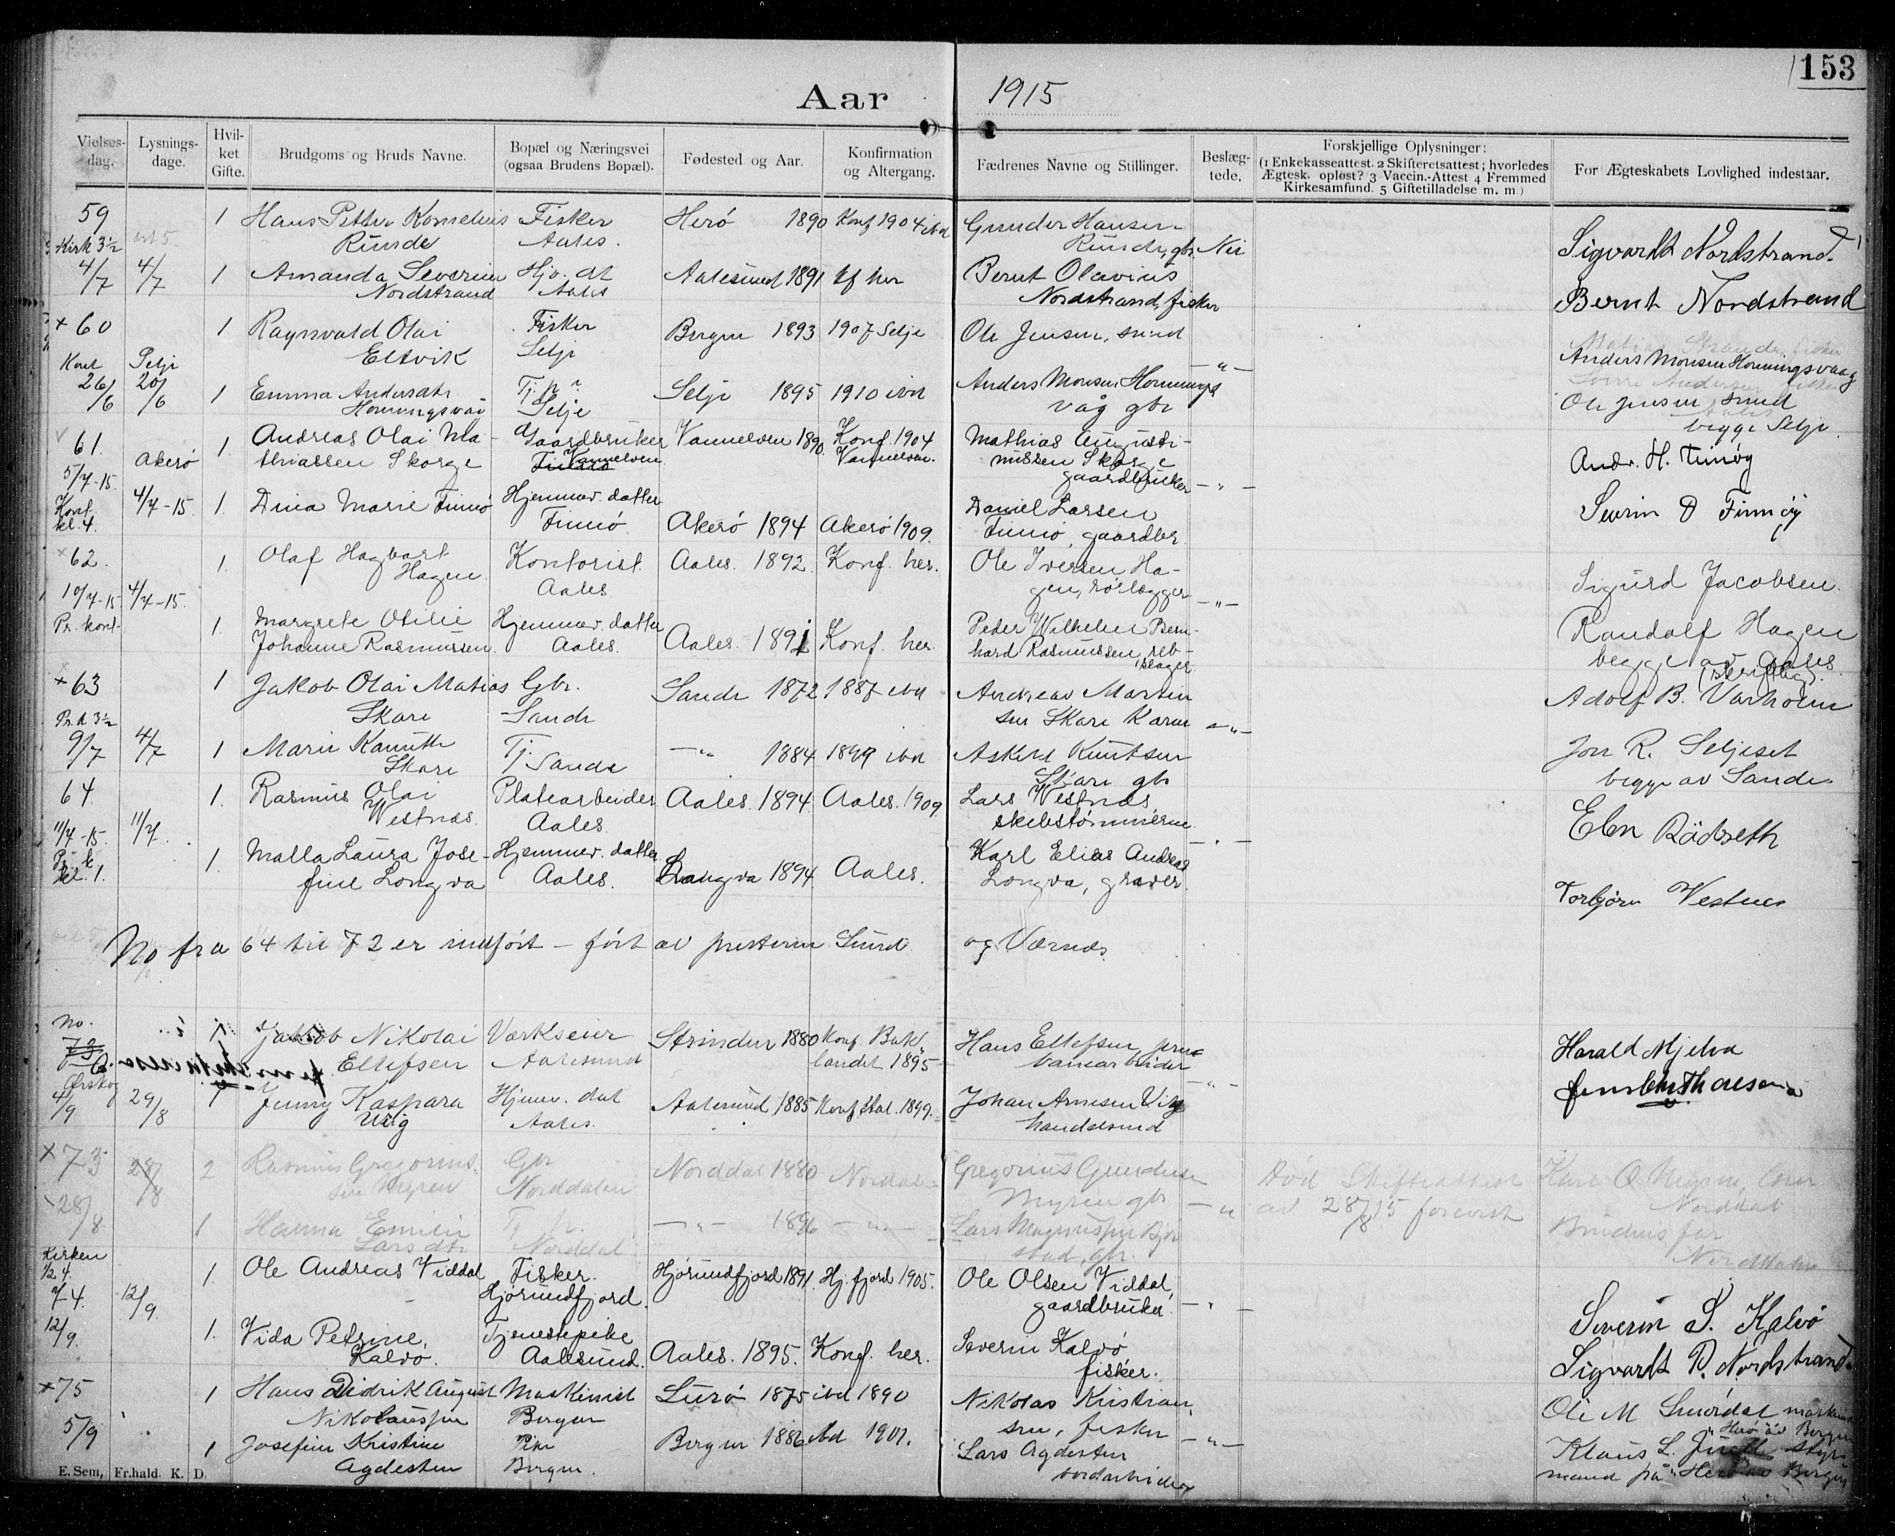 153
Aar 1915
Vielses-dag.
Lysnings-dage.
Hvil-ket Gifte.
Brudgoms og Bruds Navne.
Bopæl og Næringsvei (ogsaa Brudens Bopæl).
Fødested og Aar.
Konfirmation og Altergang.
Fædrenes Navne og Stillinger.
Beslæg-tede.
Forskjellige Oplysninger: (1 Enkekasseattest. 2 Skifteretsattest; hvorledes Ægtesk. opløst? 3 Vaccin.-Attest 4 Fremmed Kirkesamfund. 5 Giftetilladelse m. m)
For Ægteskabets Lovlighed indestaar.
59 1 Hans Petter Kornelius Fisker Herø 1890 Konf 1904 ibd Gunder Hansen
Kirk 3½ Runde Aales. Runde, gbr. Nei Sigvardt Nordstrand
4/7 4/7 1 Amanda Severine Hjv. dt Aalesund 1891 kf her Bernt Olavius
Nordstrand Aales Nordstrand, fisker Bernt Nordstrand
× 60 1 Ragnvald Olai Fisker Bergen 1893 1907 Selje Ole Jensen, smed
Kont Selje Eltvik Selje -„- Anders Monsen Hornningsvaag
26/6 20/6 1 Emma Andersdtr Tj. p. Selje 1895 1910 ibd Anders Monsen Hornnings
Hornningsvåg Selje våg gbr Ole Jensen smed
begge Selje
61. 1. Andreas Olai Ma- Gaardbruker Vannelven 1890. Konf. 1904 Mathias Augusti-
Akerø thiassen Skorge Vannelven Vannelven. nussen Skorge Andr. H. Finnøy
5/7-15. gaardbruker -„-
Konf. kl. 4. 4/7-15. 1. Dina Marie Finnø Hjemmev. datter Daniel Larsen Severin D Finnøy
Finnø Akerø 1894 Akerø 1909. Finnø, gaardbr.
× 62. 1. Olaf Hagbart Kontorist. Aales. 1892. Konf. her. Ole Iversen Ha-
Hagen. Aales gen, rørlægger Sigurd Jacobsen.
10/7-15 4/7-15. -„-
Pr. kont. 1. Margrete Otilie Hjemmev. datter Peder Wilhelm Bern- Randolf Hagen
Johanne Rasmussen. Aales. Aales. 1891 Konf. her. hard Rasmussen, reb-slager. begge av Aales.
× 63 1 Jakob Olai Matias Gbr. Sande 1872 1887 ibd Andreas Marten Adolf B. Varholm
Pr. d 3½ Skare Sande sen Skare -„-
9/7 4/7 1 Marie Kanutte Tj. -„- 1884 1899 ibd Askild Knutsen Jon R. Seljeset
Skare Sande Skare gbr begge av Sande.
64. 1. Rasmus Olai Platearbeider Aales. 1894. Aales. 1909 Lars Westnæs
Westnæs. Aales. skibstømmerm. Elen Rødseth
11/7-15. 11/7. -„-
Pr. k. kl. 1. 1. Malla Laura Jose- Hjemmev. datter Karl Elias Andreas
fine Longva Aales. Longva 1894 Aales. Longva, graver. Torbjørn Vestnes
No fra 64 til 72 er indført - ført av presterne Sund og Værnes.
No. 1 Jakob Nikolai Værkseier Strinden 1880 Konf. Bakk- Hans Ellefsen, Harald Mjelva
Ellefsen Aalesund landet 1895
Ørskog
4/9 29/8 1 Jenny Kaspara Hjemv. dat Aalesund 1885 Konf Aal. 1899. Johan Arnesen Vig
Viig Aales. handelsmd
× 73 28/8 2 Rasmus Gregorius- Gbr Norddal 1880 Norddalen Gregorius Gundersen Død Skifteattest
sen Myren Norddalen Myren gbr -„- av 28/8 15 forevist Norddal
28/8 1 Hanna Emilie Tj. p. -„- 1896 -„- Lars Magnussen Bjør Brudens far
Larsdtr Norddal stad, gbr. Norddalen
Kirken ½ 4. 1. Ole Andreas Viddal Fisker. Hjørundfjord 1891. Hj.fjord 1905. Ole Olsen Viddal,
74. 12/9. Hjørundfjord. gaardbruker. -„- Severin S. Kalvø
12/9. 1. Vida Petrine Tjenestepike Severin Kalvø
Kalvø. Aalesund. Aales. 1895. Konf. her. fisker. Sigvardt B. Nordstrand
× 75 1 Hans Didrik August Maskinist Lurø 1875 ibd 1890 Nikolas Kristian- Ole M Smørdal maskinist
5/9 Nikolaussen Bergen sen, fisker -„- "Herø" av Bergen
1 Josefine Kristine Pike Bergen 1886 ibd 1901. Lars Agdestein Klaus L. styr-
Agdestein Bergen. mand på "Herø" av Bergen
E. Sem, Fr.hald. K. D.